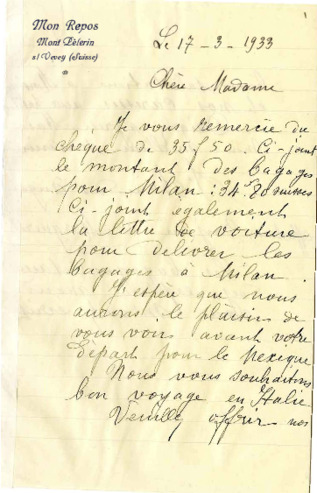 Mon Repos
Mont Pèlerin
s/ Vevey (Suisse)
Le 17-3-1933
Chère Madame
Je vous remercie du
chèque de 35f50. Ci-joint
le montant des bagages
pour Milan : 34f20 suisses
Ci-joint également
la lettre de voiture
pour délivrer les
bagages à Milan.
J'espère que nous
aurons le plaisir de
vous voir avant votre
départ pour le Mexique
Nous vous souhaitons
bon voyage en Italie
Veuillez offrir nos